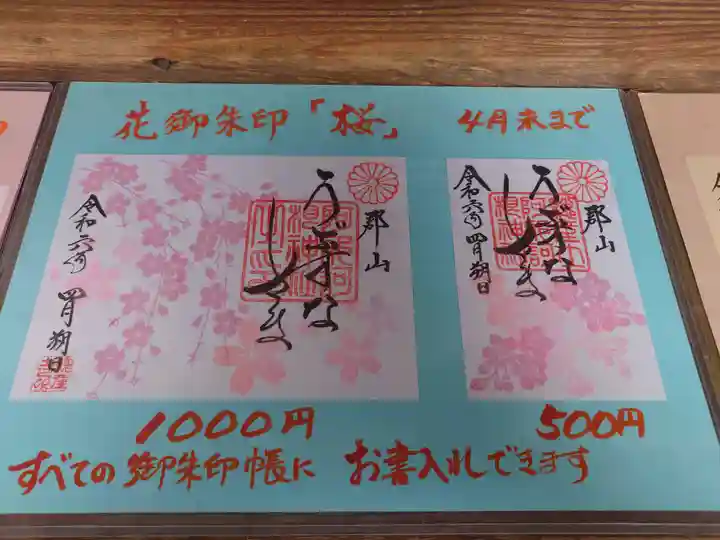 花御朱印「桜」 4月末まで
郡山
うぶすな
令和六年 四月朔日
郡山
うぶすな
令和六年 四月朔日
1000円
500円
すべての御朱印帳に お書入れできます